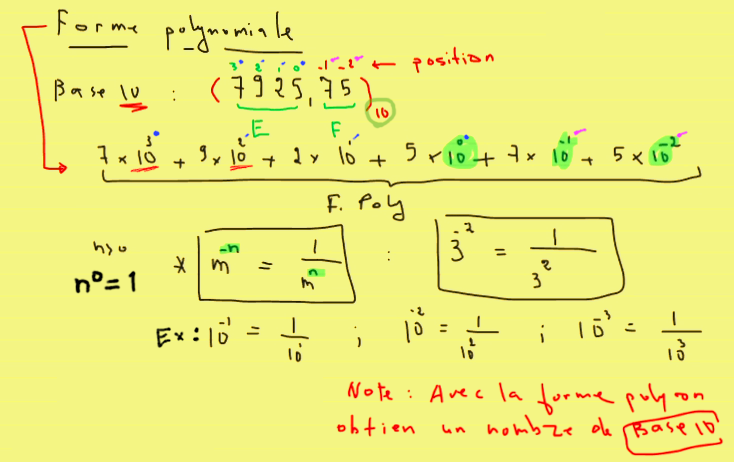 Forme polynomiale
3 2 1 0 -1 -2 ← position
Base 10 : (7925,75)₁₀
E F
7 × 10³ + 9 × 10² + 2 × 10¹ + 5 × 10⁰ + 7 × 10⁻¹ + 5 × 10⁻²
F. Poly
n>0
n⁰=1 * m⁻ⁿ = 1/mⁿ : 3⁻² = 1/3²
Ex : 10⁻¹ = 1/10¹ ; 10⁻² = 1/10² ; 10⁻³ = 1/10³
Note : Avec la forme poly on
obtien un nombre de Base 10